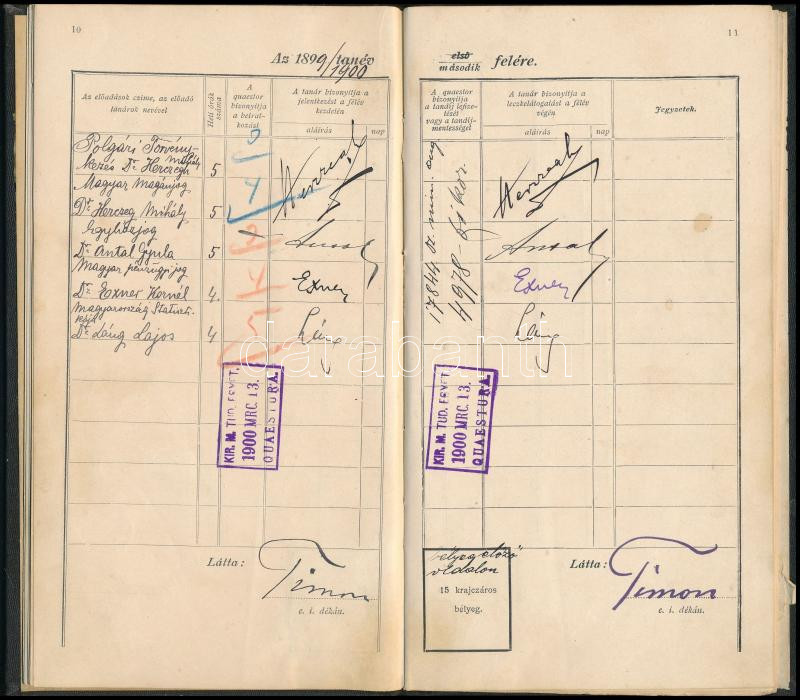 10
Az 1899/1900 tanév
Az előadások czime, az előadó tanárok nevével
Heti órák száma
A quaestor bizonyitja a beirat-kozást
A tanár bizonyitja a jelentkezést a félév kezdetén
aláirás
nap
Polgári Törvény-
kezés Dr. Herczegh Mihály
5
Magyar Magánjog
Dr. Herczeg Mihály
5
Egyházjog
Dr. Antal Gyula
5
Magyar pénzügyijog
Dr. Exner Kornél
4.
Magyarország Statiszti-
kája
Dr. Láng Lajos
4
Herczegh
Antal
Exner
Láng
KIR. M. TUD. EGYET.
1900 MRC. 13.
QUAESTURA.
Látta:
Timon
e. i. dékán.
11
első
második felére.
A quaestor bizonyitja a tandij lefize-tését vagy a tandij-mentességet
A tanár bizonyitja a leczkelátogatást a félév végén
aláirás
nap
Jegyzetek.
Herczegh
Antal
Exner
Láng
KIR. M. TUD. EGYET.
1900 MRC. 13.
QUAESTURA.
bélyeg előző
oldalon
15 krajczáros
bélyeg.
Látta:
Timon
e. i. dékán.
darabanth